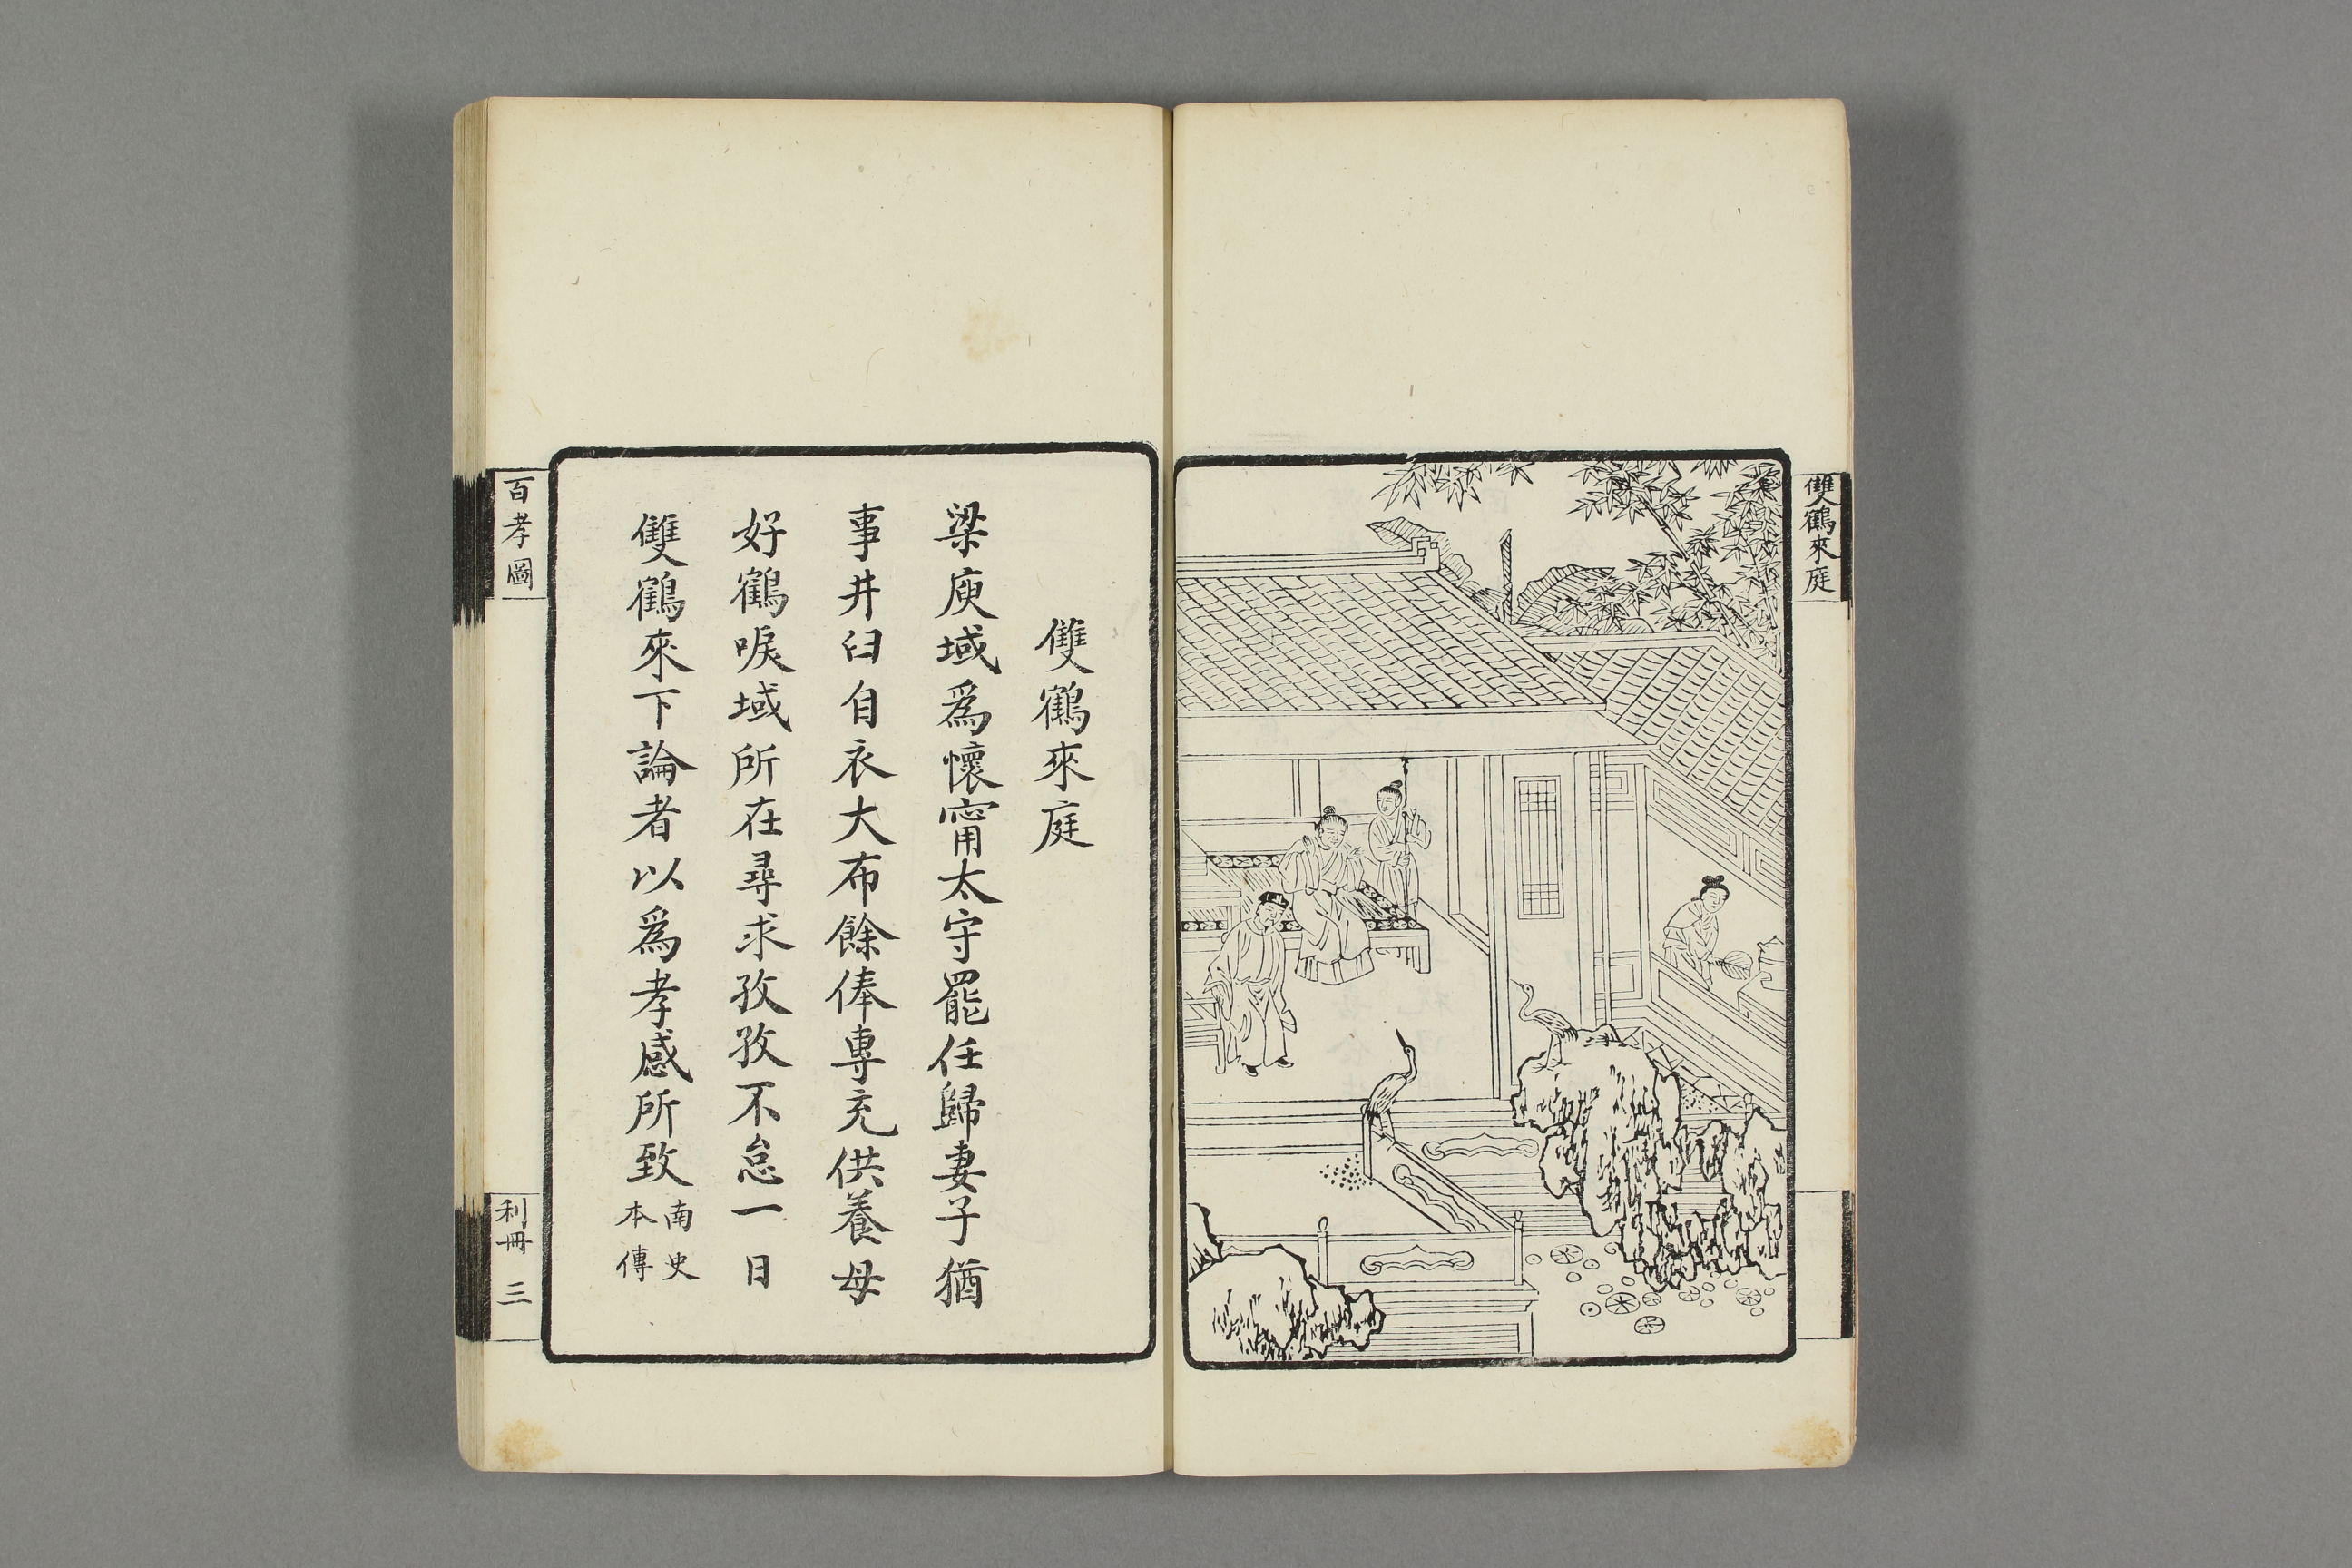 雙鶴來庭
雙鶴來庭
梁庾域爲懷甯太守罷任歸妻子猶
事井臼自衣大布餘俸專充供養母
好鶴唳域所在尋求孜孜不怠一日
雙鶴來下論者以爲孝感所致南史
本傳
百孝圖
利冊 三